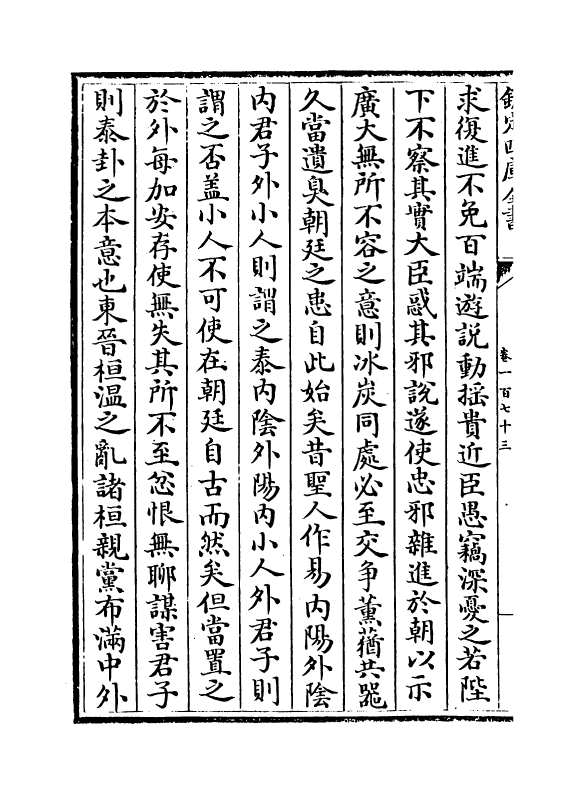 欽定四庫全書
卷一百七十三
求復進不免百端遊説動揺貴近臣愚竊深憂之若陛
下不察其實大臣惑其邪説遂使忠邪雜進於朝以示
廣大無所不容之意則冰炭同處必至交争薫蕕共器
久當遺臭朝廷之患自此始矣昔聖人作易内陽外陰
内君子外小人則謂之泰内陰外陽内小人外君子則
謂之否盖小人不可使在朝廷自古而然矣但當置之
於外每加安存使無失其所不至忿恨無聊謀害君子
則泰卦之本意也東晉桓温之亂諸桓親黨布滿中外